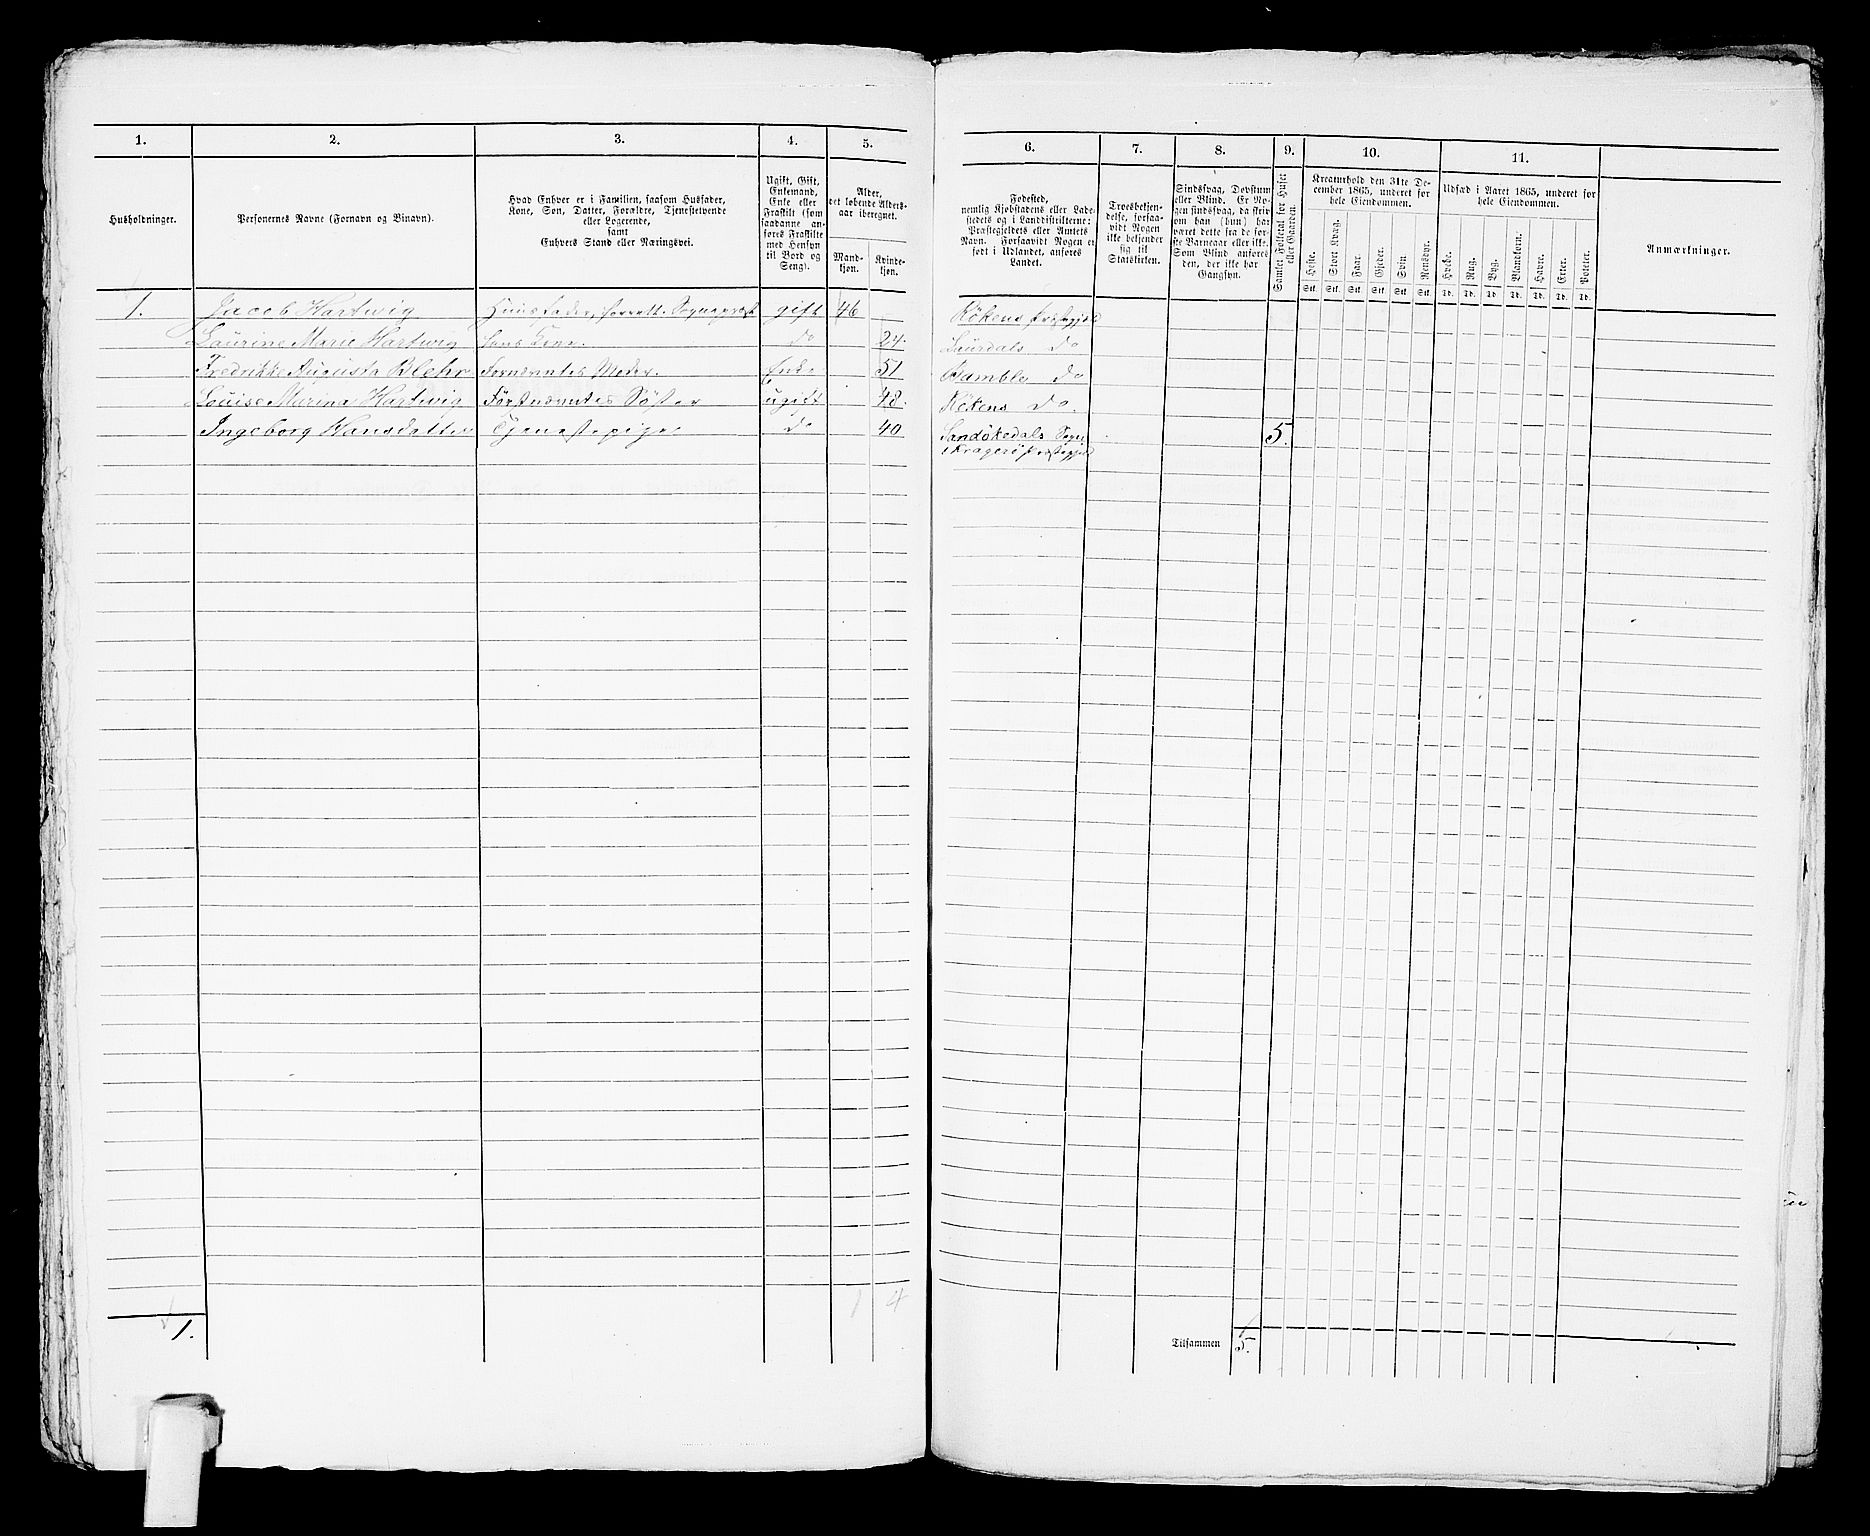 1.
2.
3.
4.
5.
Husholdninger.
Personernes Navne (Fornavn og Binavn).
Hvad Enhver er i Familien, saasom Husfader,
Kone, Søn, Datter, Forældre, Tjenestetyende
eller Logerende,
samt
Enhvers Stand eller Næringsvei.
Ugift, Gift,
Enkemand,
Enke eller
Fraskilt (som
saadanne an-
føres Fraskilte
med Hensyn
til Bord og
Seng).
Alder,
det løbende Alders-
aar iberegnet.
Mand-
kjøn.
Kvinde-
kjøn.
1. Jacob Hartwig Huusfader, Sognepræst gift 46
Laurine Marie Hartwig Hans Kone do 24.
Fredrikke Augusta Blehr Fornævntes Moder. Enke 51
Louise Marina Hartwig Førstnævntes Søster ugift 48.
Ingeborg Hansdatter Tjenestepige do 40
1 4
1.
6.
7.
8.
9.
10.
11.
Fødested,
nemlig Kjøbstadens eller Lade-
stedets og i Landdistrikterne:
Præstegjeldets eller Amtets
Navn. Forsaavidt Nogen er
født i Udlandet, anføres
Landet.
Troesbekjen-
delse, forsaa-
vidt Nogen
ikke bekjender
sig til
Statskirken.
Sindssvag, Døvstum
eller Blind. Er No-
gen sindssvag, da skriv
om han (hun) har
været dette fra de før-
ste Barneaar eller ikke.
Som Blind anføres
den, der ikke har
Gangsyn.
Samlet Folketal for Huset
eller Gaarden.
Kreaturhold den 31te De-
cember 1865, underet for
hele Eiendommen.
Heste. Stort Kvæg. Faar. Gjeder. Svin. Rensdyr.
Stk. Stk. Stk. Stk. Stk. Stk.
Udsæd i Aaret 1865, underet for
hele Eiendommen.
Hvede. Rug. Byg. Blandkorn. Havre. Erter. Poteter.
Td. Td. Td. Td. Td. Td. Td.
Anmærkninger.
Rökens Præstegjeld
Laurdals do
Bamble do
Rökens do.
Sandökedals Sogn 5.
i Kragerö Præstegjeld
Tilsammen 5.